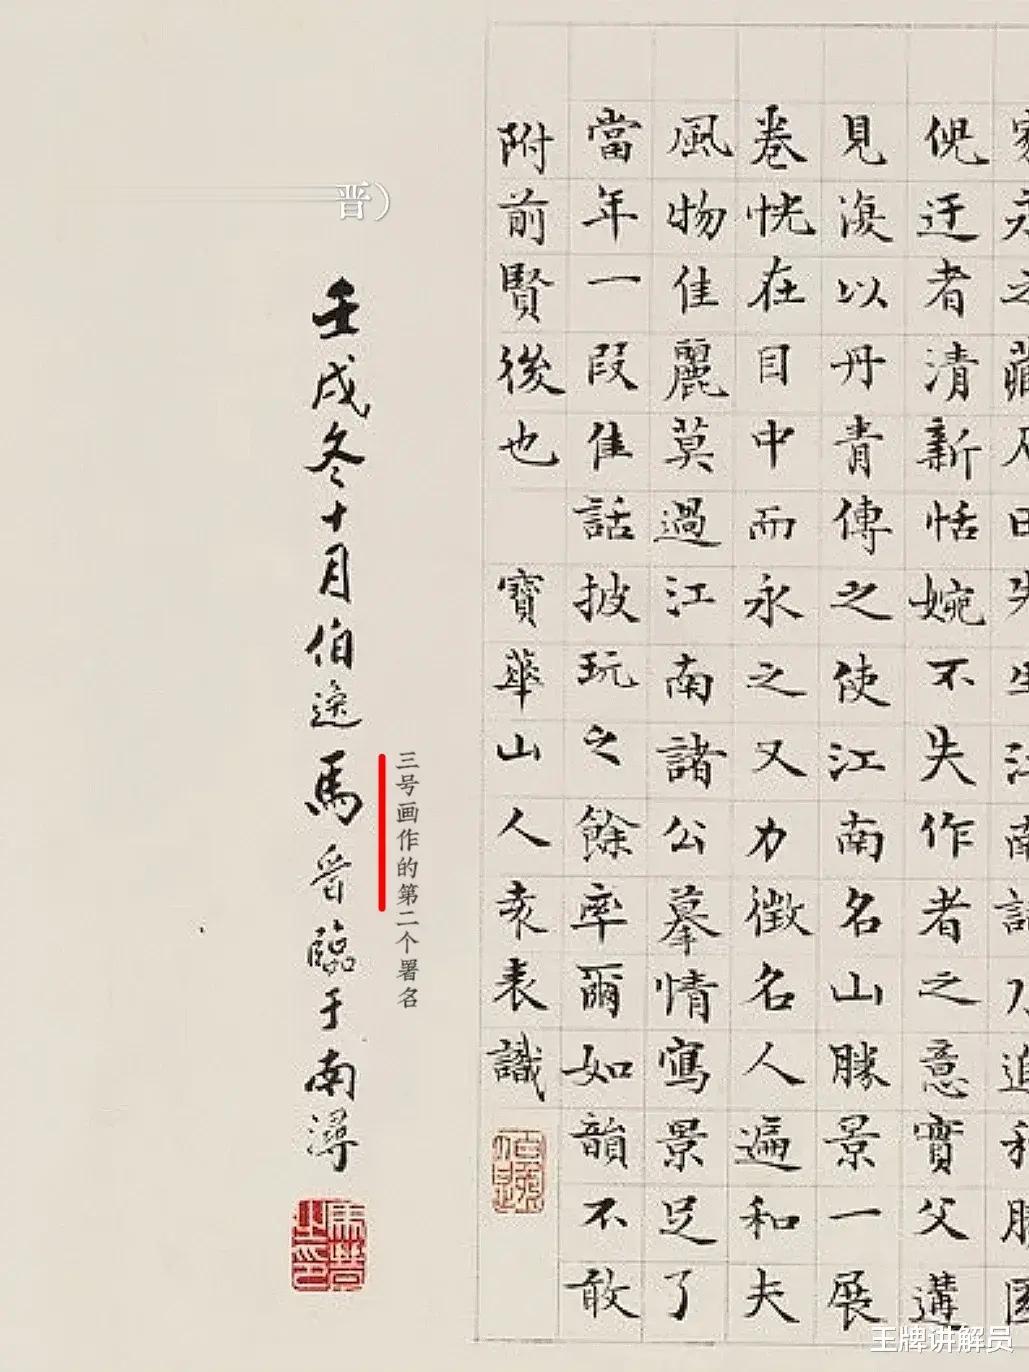 之藏曰江南
倪迂者清新恬婉不失作者之意實父遘
見復以丹青傳之使江南名山勝景一展
卷恍在目中而永之又力徵名人遍和夫
風物佳麗莫過江南諸公摹情寫景足了
當年一段佳話披玩之餘率爾如韻不敢
附前賢後也 寶華山人袁表識
三号画作的第二个署名
晋）
壬戌冬十月伯逸馬晉臨于南潯
馬晉之印
王牌讲解员